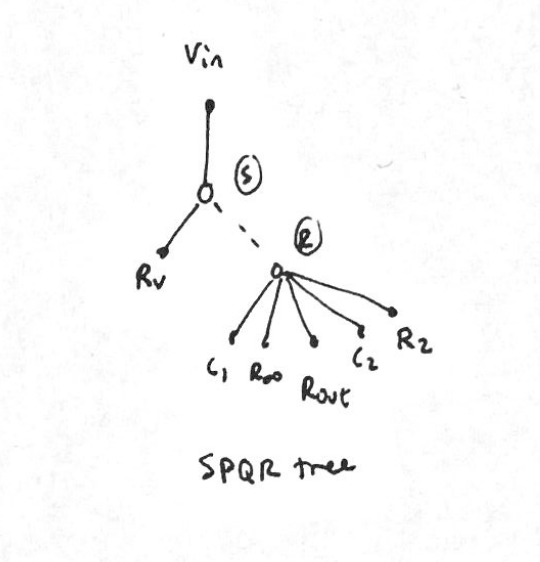 Vin
S
R
Rv
C1 R∞ Rout C2 R2
SPQR tree